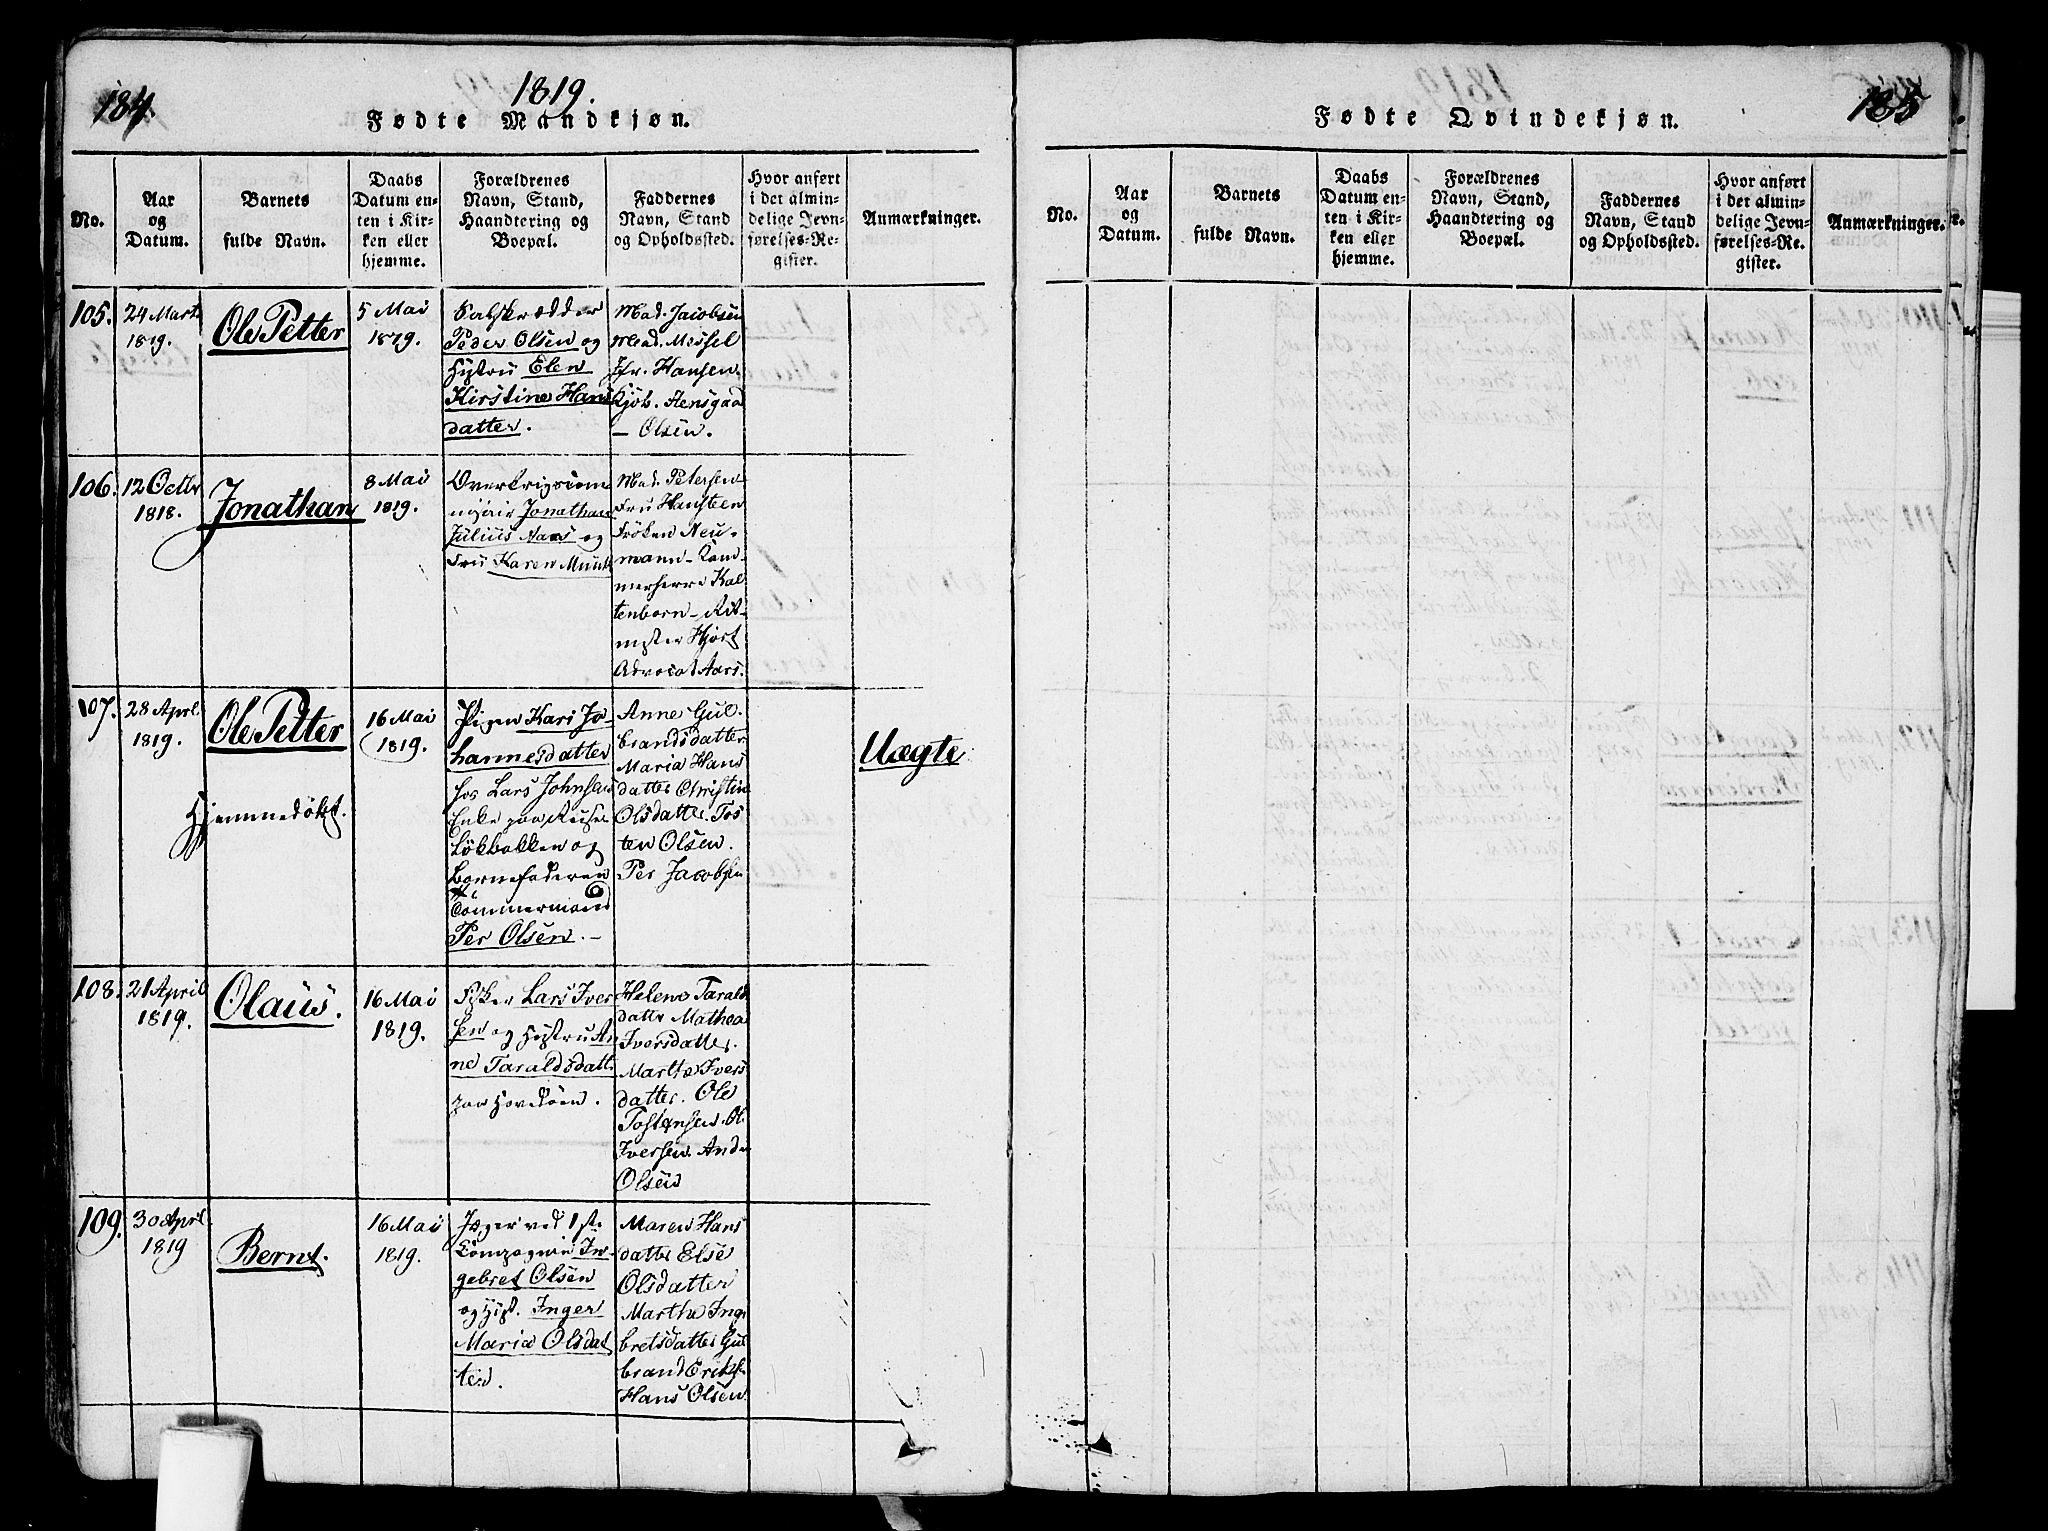 184.
1819.
Fødte Mandkjøn.
No.
Aar og Datum.
Barnets fulde Navn.
Daabs Datum enten i Kirken eller hjemme.
Forældrenes Navn, Stand, Haandtering og Boepæl.
Faddernes Navn, Stand og Opholdssted.
Hvor anført i det almindelige Jevnførelses-Register.
Anmærkninger.
105.
24 Marts
1819.
Ole Petter
5 Mai
1819.
Peder Olsen og
Hustru Elen
Kirstine Hans
datter.
Mad. Jacobsen
Mad. Missel
Jfr. Hansen
Kjøb. Hensgaad
– Olsen.
106.
12 Octbr
1818.
Jonathan
8 Mai
1819.
Overkrigscom
misair Jonathan
Julius Aars og
Fru Karen Munck
Mad. Petersen
Fru Hansteen
Fröken Neu-
mann – Kam
merherre Kal
tenborn – Rit-
mester Hjort
Advocat Aars.
107.
28 Apri.
1819.
Ole Petter
Hjemmedøbt.
16 Mai
1819.
Pigen Kari Jo-
hannesdatter
hos Lars Johnsens
Enke paa
Lökbakken og
Barnefaderen
Tömmermand
Per Olsen. –
Anne Gul.
brandsdatter
Maria Hans
datter Christin
Olsdatter. Tos
ten Olsen.
Per Jacobsen
Uægte
108.
21 April
1819.
Olaus.
16 Mai
1819.
Fisker Lars Iver
sen og Hustru An
ne Taraldsdatt.
paa Hovedöen.
Helene Tarald
datter Mathea
Iversdatter.
Marthe Ivers
datter. Ole
Tostensen. Ol.
Iversen. Andr
Olsen
109.
30 April.
1819
Bernt.
16 Mai
1819.
Jæger ved 1ste
Compagnie In-
gebret Olsen
og Hust. Inger
Maria Olsdat
ter.
Maren Hans
datter Else
Olsdatter
Marthe Inge
bretsdatter Gul
brand Eriks.
Hans Olsen
185
Fødte Qvindekjøn.
No.
Aar og Datum.
Barnets fulde Navn.
Daabs Datum enten i Kirken eller hjemme.
Forældrenes Navn, Stand, Haandtering og Boepæl.
Faddernes Navn, Stand og Opholdssted.
Hvor anført i det almindelige Jevnførelses-Register.
Anmærkninger.